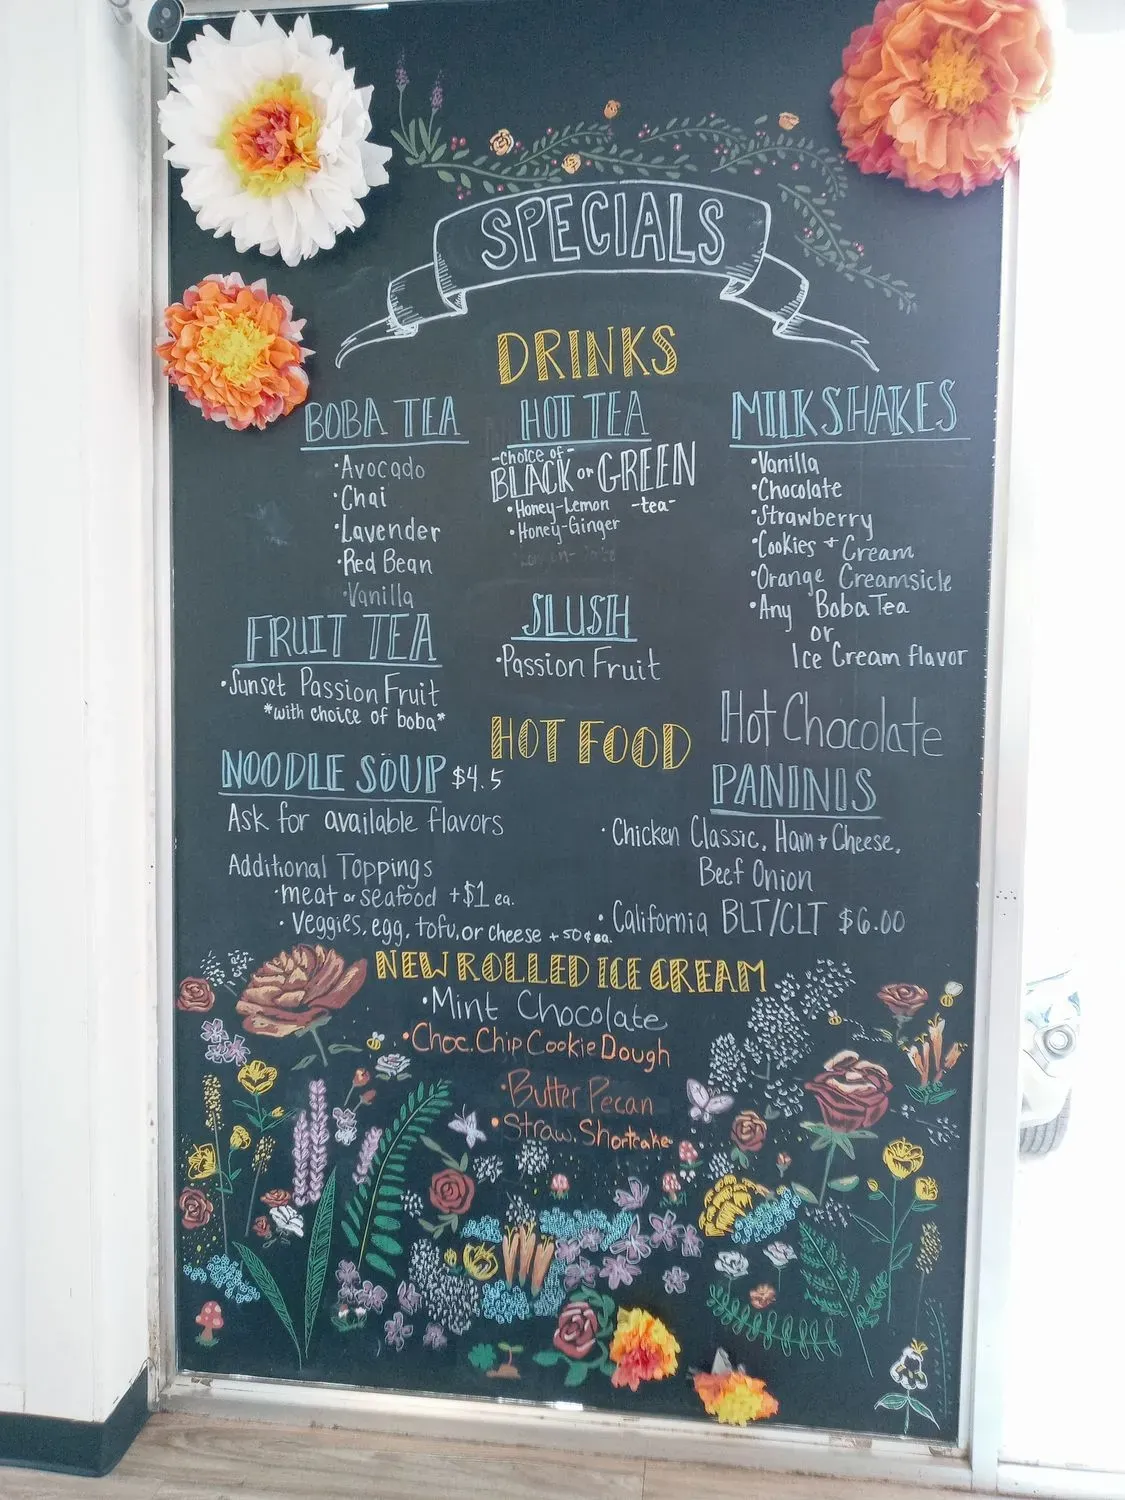 SPECIALS
DRINKS
BOBA TEA
•Avocado
•Chai
•Lavender
•Red Bean
•Vanilla
HOT TEA
-choice of-
BLACK or GREEN
•Honey-Lemon -tea-
•Honey-Ginger
MILKSHAKES
•Vanilla
•Chocolate
•Strawberry
•Cookies + Cream
•Orange Creamsicle
•Any Boba Tea
or
Ice Cream flavor
FRUIT TEA
•Sunset Passion Fruit
*with choice of boba*
SLUSH
•Passion Fruit
Hot Chocolate
HOT FOOD
NOODLE SOUP $4.5
Ask for available flavors
Additional Toppings
•meat or seafood +$1 ea.
•Veggies, egg, tofu, or cheese + 50¢ ea.
PANINIS
•Chicken Classic, Ham + Cheese,
Beef Onion
•California BLT/CLT $6.00
NEW ROLLED ICE CREAM
•Mint Chocolate
•Choc. Chip Cookie Dough
•Butter Pecan
•Straw. Shortcake